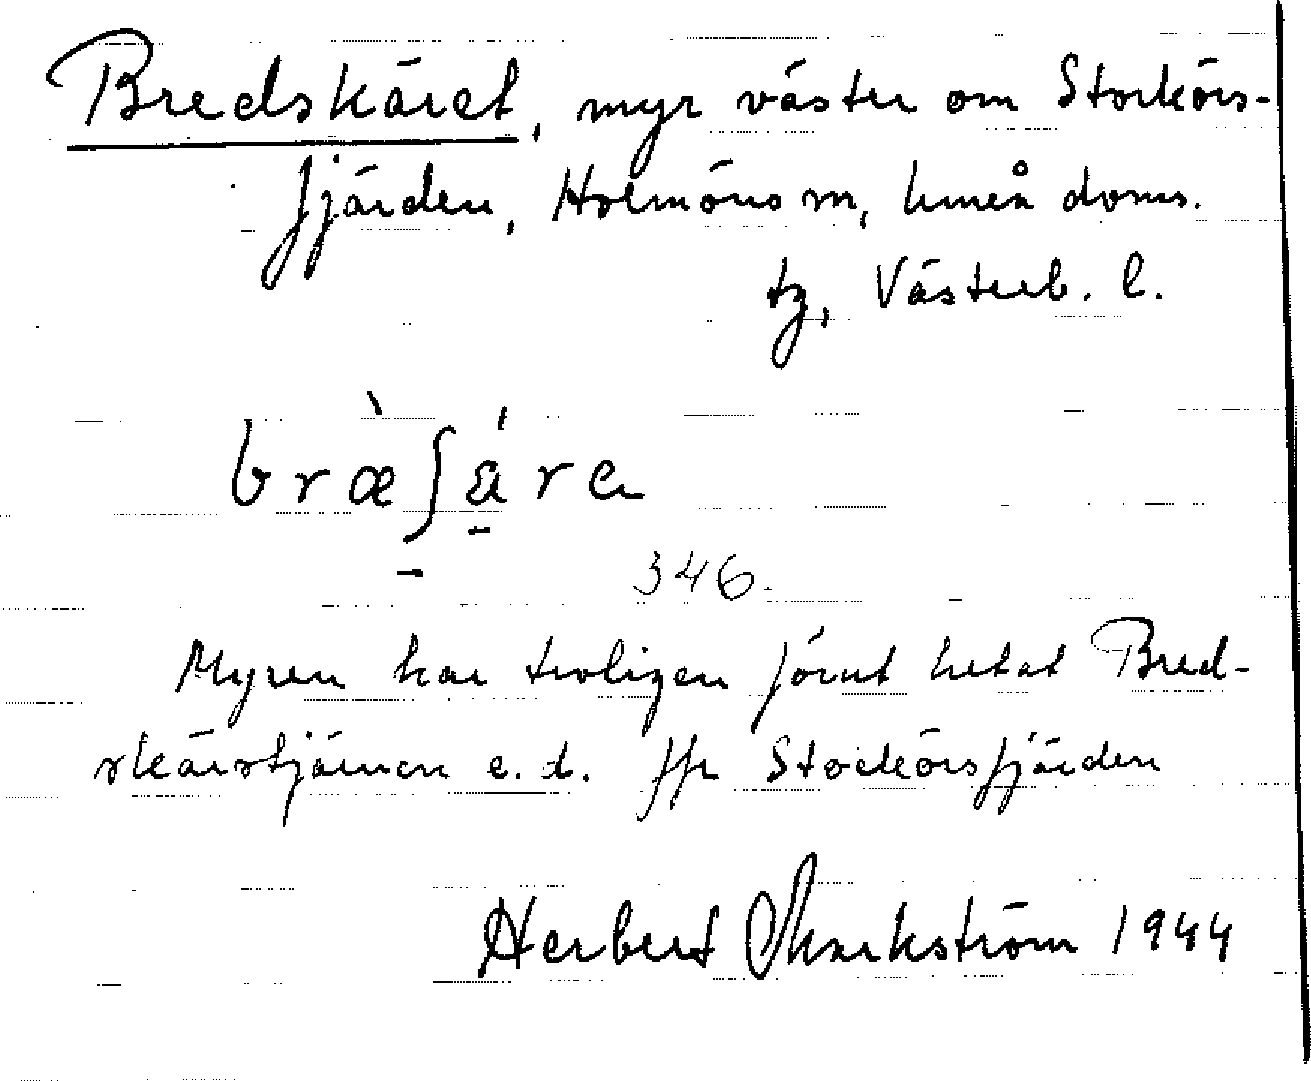 Bredskäret, myr väster om Storkörs-
fjärden, Holmöns sn, Umeå doms.
tg, Västerb. l.
bræ̀ʃá̱ra
346.
Myren har troligen förut hetat Bred-
skärstjärnen e.d. Jfr Storkörsfjärden
Herbert Markström 1944